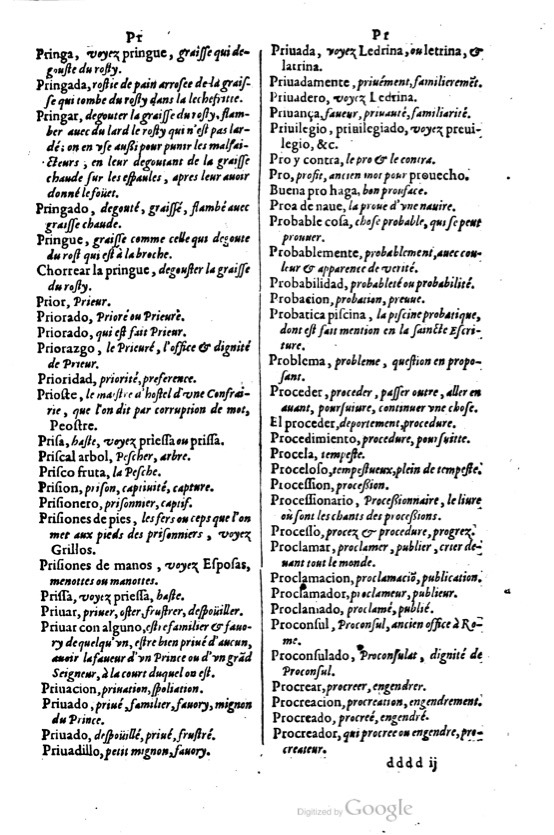 Pr
Pringa, voyez pringue, graisse qui de-
gouste du rosty.
Pringada, rostie de pain arrosee de la grais-
se qui tombe du rosty dans la lechefritte.
Pringar, degouter la graisse du rosty, flam-
ber auec du lard le rosty qui n'est pas lar-
dé; on en vse aussi pour punir les malfai-
cteurs, en leur degoutans de la graisse
chaude sur les espaules, apres leur auoir
donné le foüet.
Pringado, degouté, graissé, flambé auec
graisse chaude.
Pringue, graisse comme celle qui degoute
du rost qui est à la broche.
Chorrear la pringue, degouster la graisse
du rosty.
Prior, Prieur.
Priorado, Prioré ou Prieuré.
Priorado, qui est fait Prieur.
Priorazgo, le Prieuré, l'office & dignité
de Prieur.
Prioridad, priorité, preference.
Prioste, le maistre d'hostel d'vne Confrai-
rie, que l'on dit par corruption de mot,
Peostre.
Prisa, haste, voyez priessa ou prissa.
Priscal arbol, Pescher, arbre.
Prisco fruta, la Pesche.
Prision, prison, captiuité, capture.
Prisionero, prisonnier, captif.
Prisiones de pies, les fers ou ceps que l'on
met aux pieds des prisonniers, voyez
Grillos.
Prisiones de manos, voyez Esposas,
menottes ou manottes.
Prissa, voyez priessa, haste.
Priuar, priuer, oster, frustrer, despoüiller.
Priuar con alguno, estre familier & fauo-
ry de quelqu'vn, estre bien priué d'aucun,
auoir la faueur d'vn Prince ou d'vn grãd
Seigneur, à la court duquel on est.
Priuacion, priuation, spoliation.
Priuado, priué, familier, fauory, mignon
du Prince.
Priuado, despoüillé, priué, frustré.
Priuadillo, petit mignon, fauory.
Pr
Priuada, voyez Ledrina, ou letrina, &
latrina.
Priuadamente, priuément, familieremẽt.
Priuadero, voyez Ledrina.
Priuança, faueur, priuauté, familiarité.
Priuilegio, priuilegiado, voyez preui-
legio, &c.
Pro y contra, le pro & le contra.
Pro, profit, ancien mot pour prouecho.
Buena pro haga, bon prouface.
Proa de naue, la proue d'vne nauire.
Probable cosa, chose probable, qui se peut
prouuer.
Probablemente, probablement, auec cou-
leur & apparence de verité.
Probabilidad, probableté ou probabilité.
Probacion, probation, preuue.
Probatica piscina, la piscine probatique,
dont est fait mention en la saincte Escri-
ture.
Problema, probleme, question en propo-
sant.
Proceder, proceder, passer outre, aller en
auant, poursuiure, continuer vne chose.
El proceder, deportement, procedure.
Procedimiento, procedure, poursuitte.
Procela, tempeste.
Proceloso, tempestueux, plein de tempeste.
Procession, procession.
Processionario, Processionnaire, le liure
où sont les chants des processions.
Processo, procez & procedure, progrez.
Proclamar, proclamer, publier, crier de-
uant tout le monde.
Proclamacion, proclamaciõ, publication.
Proclamador, proclameur, publieur.
Proclamado, proclamé, publié.
Proconsul, Proconsul, ancien office à Ro-
me.
Proconsulado, Proconsulat, dignité de
Proconsul.
Procrear, procreer, engendrer.
Procreacion, procreation, engendrement.
Procreado, procreé, engendré.
Procreador, qui procree ou engendre, pro-
createur.
dddd ij
Digitized by Google